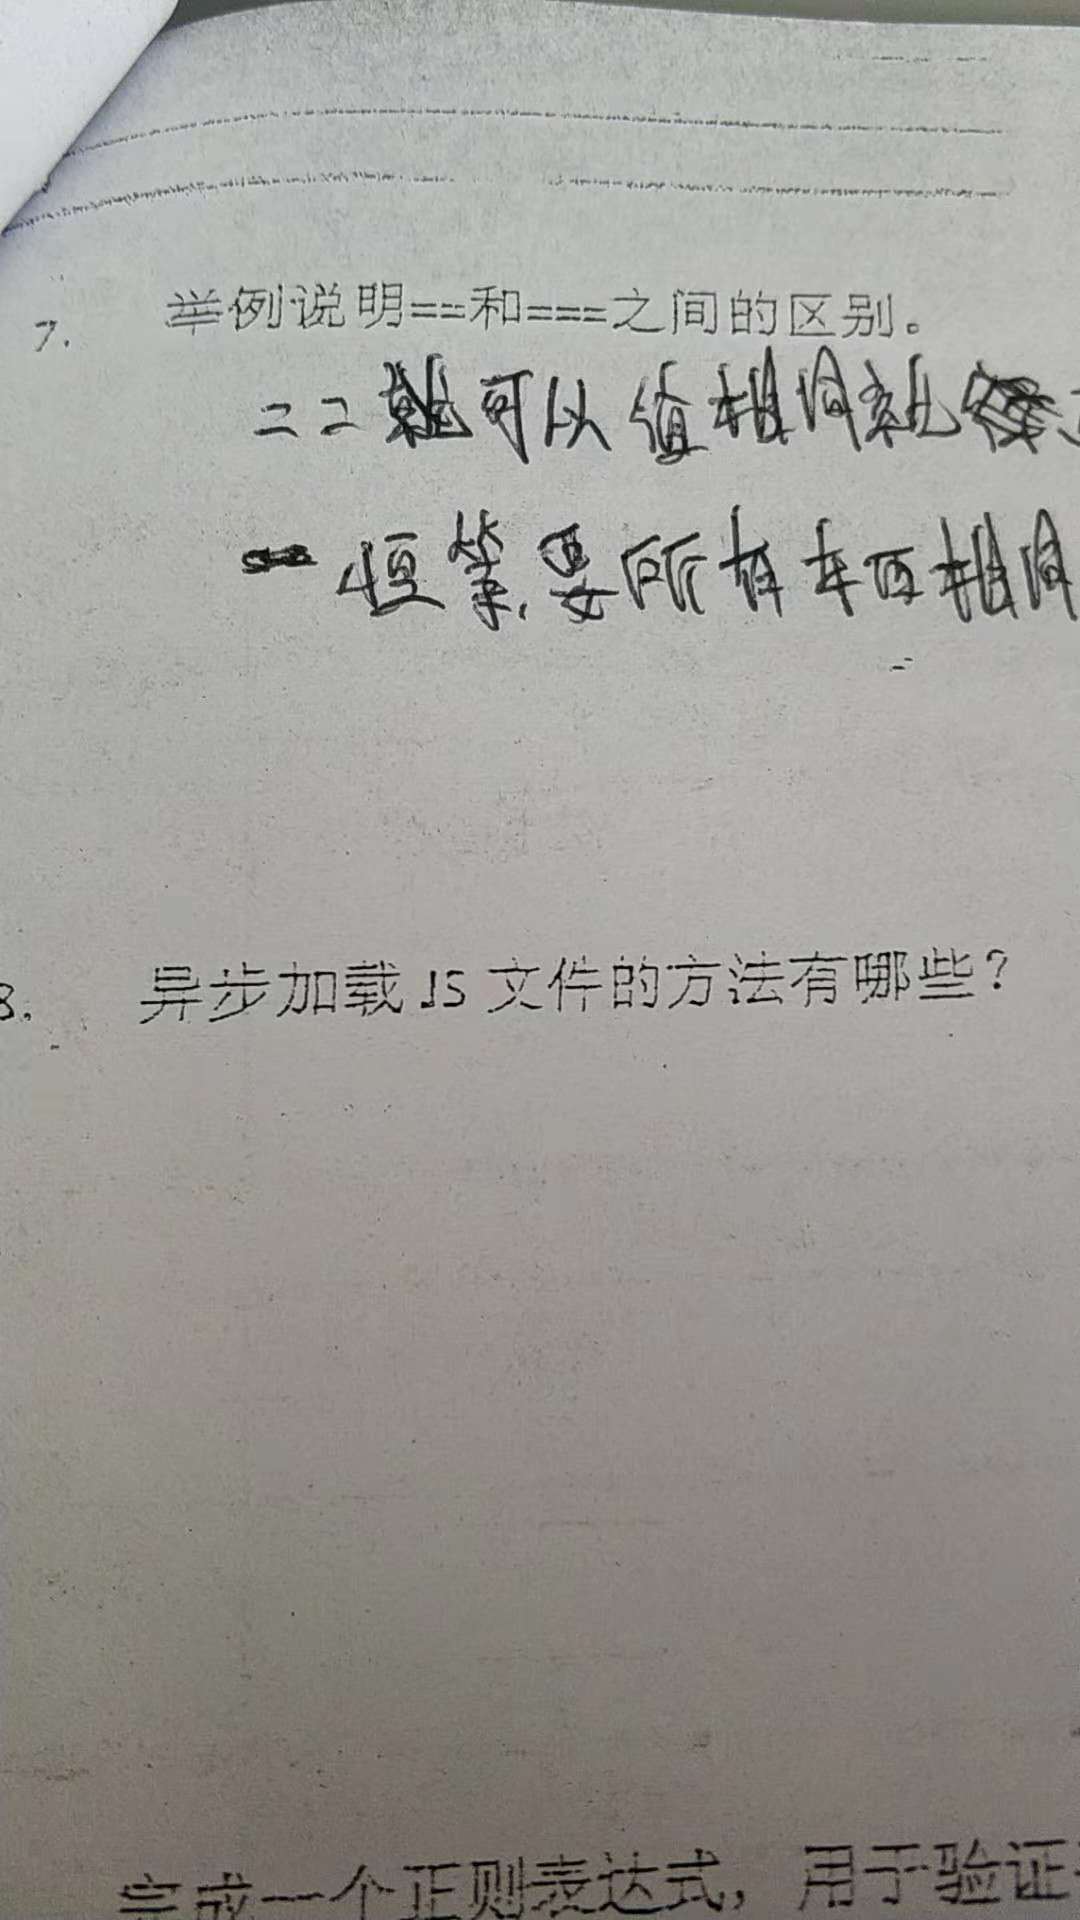 7. 举例说明==和===之间的区别。
== 就可以值相同就
恒等,要所有东西相同
8. 异步加载JS文件的方法有哪些?
完成一个正则表达式,用于验证